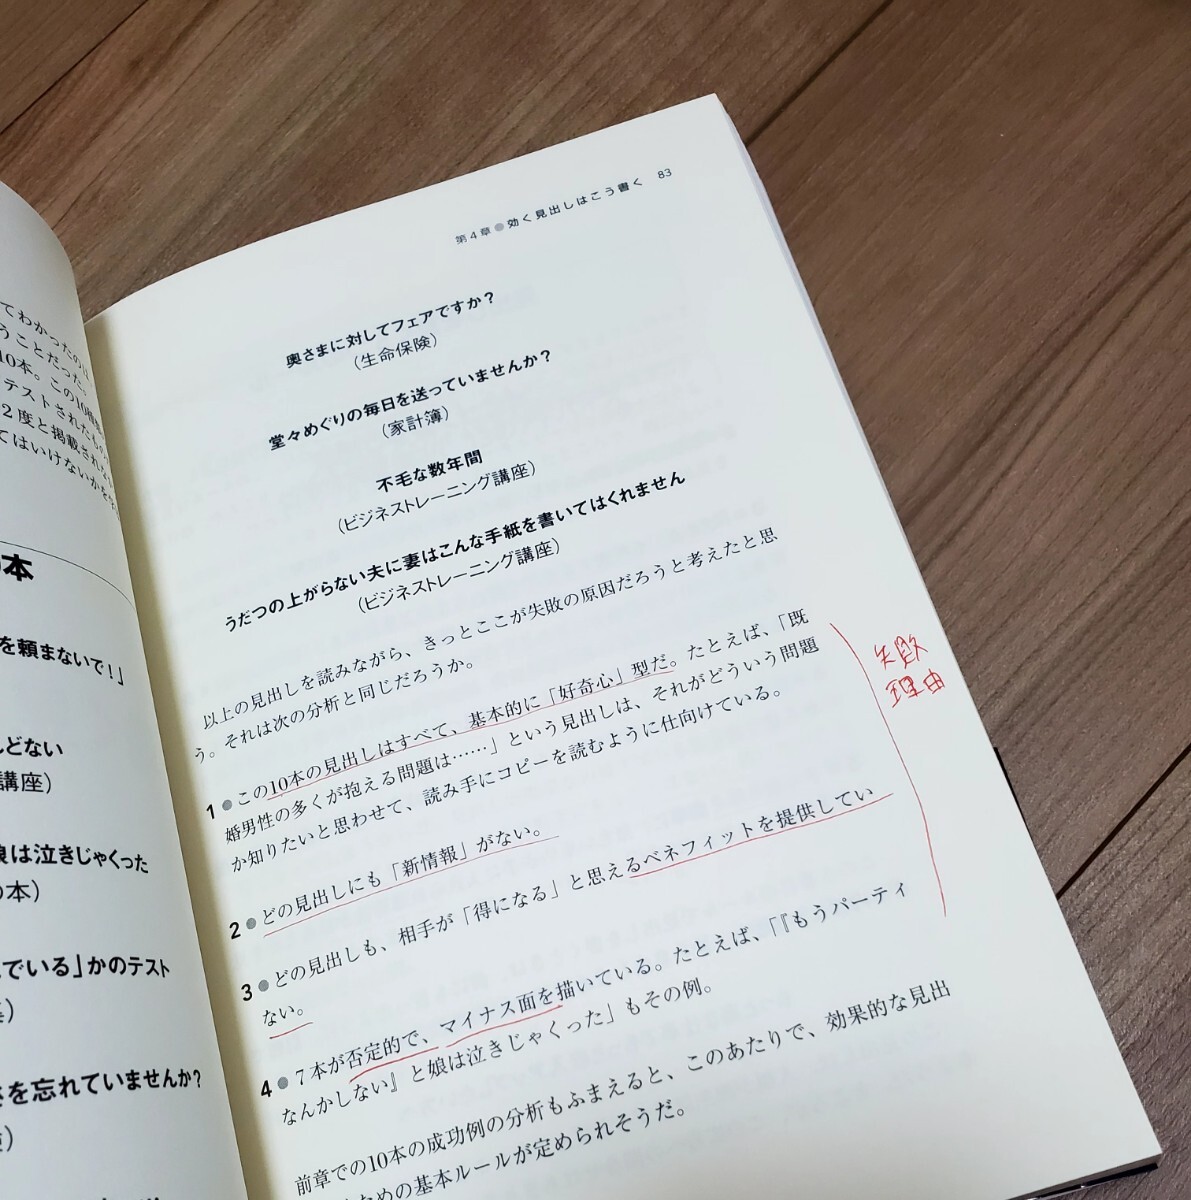 てわかったのは、
うことだった。
10本。この10種類
テストされたもの
2度と掲載されな
てはいけないかを学
本
を頼まないで！」
んどない
講座）
娘は泣きじゃくった
の本）
でいる」かのテスト
さを忘れていませんか？
第4章●効く見出しはこう書く 83
奥さまに対してフェアですか？
（生命保険）
堂々めぐりの毎日を送っていませんか？
（家計簿）
不毛な数年間
（ビジネストレーニング講座）
うだつの上がらない夫に妻はこんな手紙を書いてはくれません
（ビジネストレーニング講座）
以上の見出しを読みながら、きっとここが失敗の原因だろうと考えたと思
う。それは次の分析と同じだろうか。
1●この10本の見出しはすべて、基本的に「好奇心」型だ。たとえば、「既
婚男性の多くが抱える問題は……」という見出しは、それがどういう問題
か知りたいと思わせて、読み手にコピーを読むように仕向けている。
2●どの見出しにも「新情報」がない。
3●どの見出しも、相手が「得になる」と思えるベネフィットを提供してい
ない。
4●7本が否定的で、マイナス面を描いている。たとえば、「『もうパーティ
なんかしない』と娘は泣きじゃくった」もその例。
前章での10本の成功例の分析もふまえると、このあたりで、効果的な見出
ための基本ルールが定められそうだ。
失敗
理由